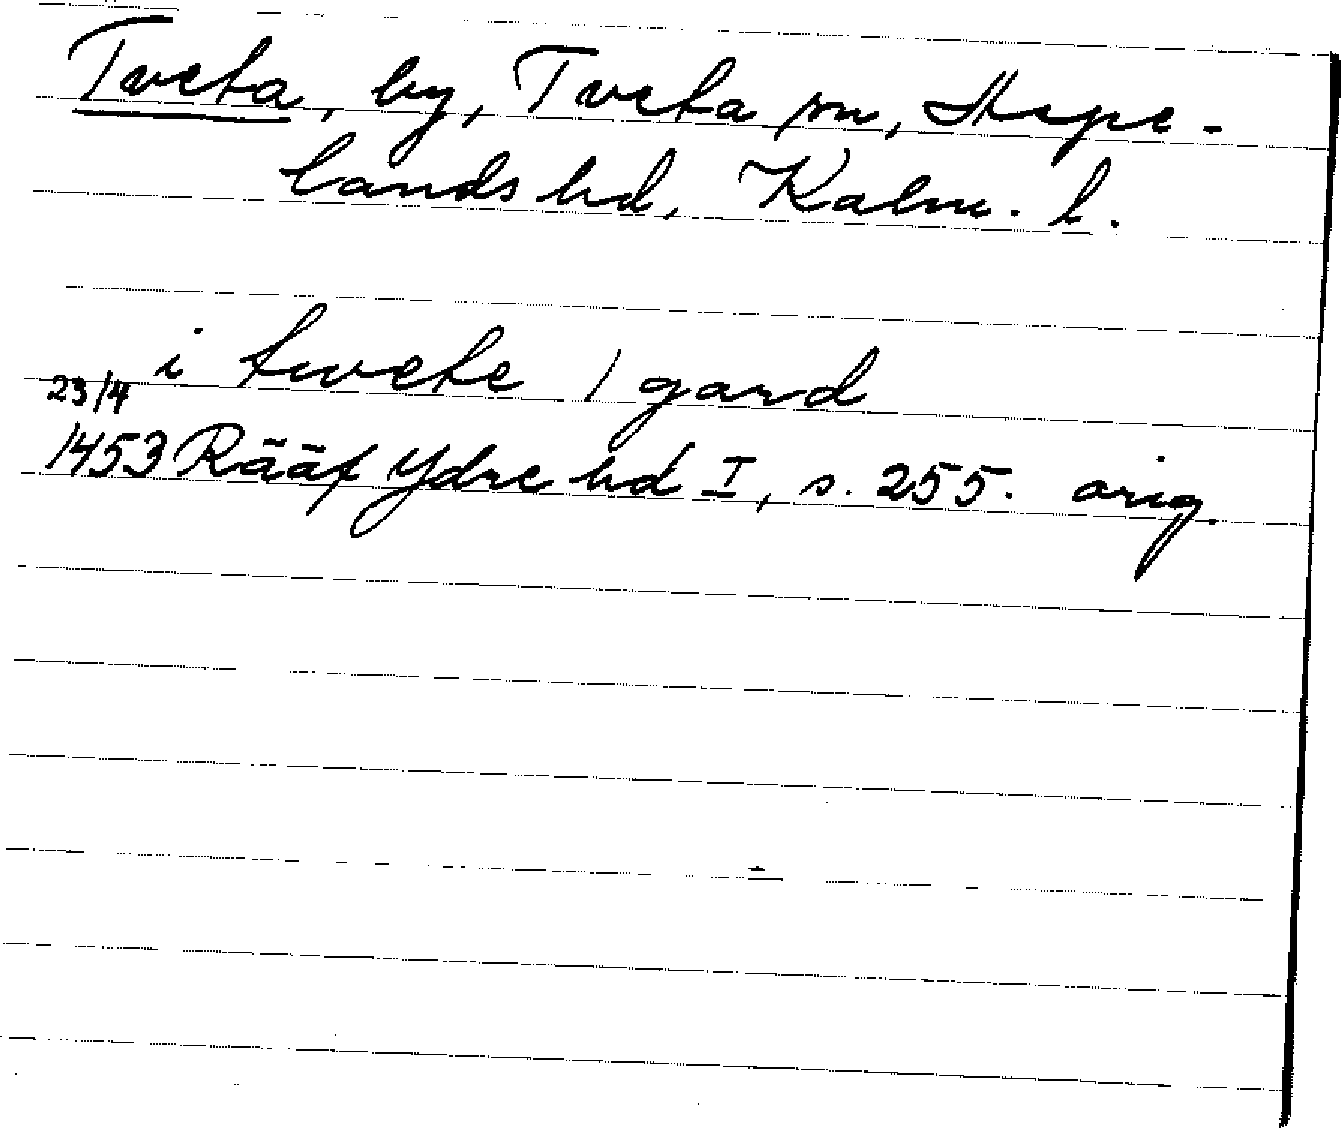 Tveta, by, Tveta sn, Aspe-
lands hd, Kalm. l.
i twete 1 gard
23/4
1453 Rääf Ydre hd I, s. 255. orig.